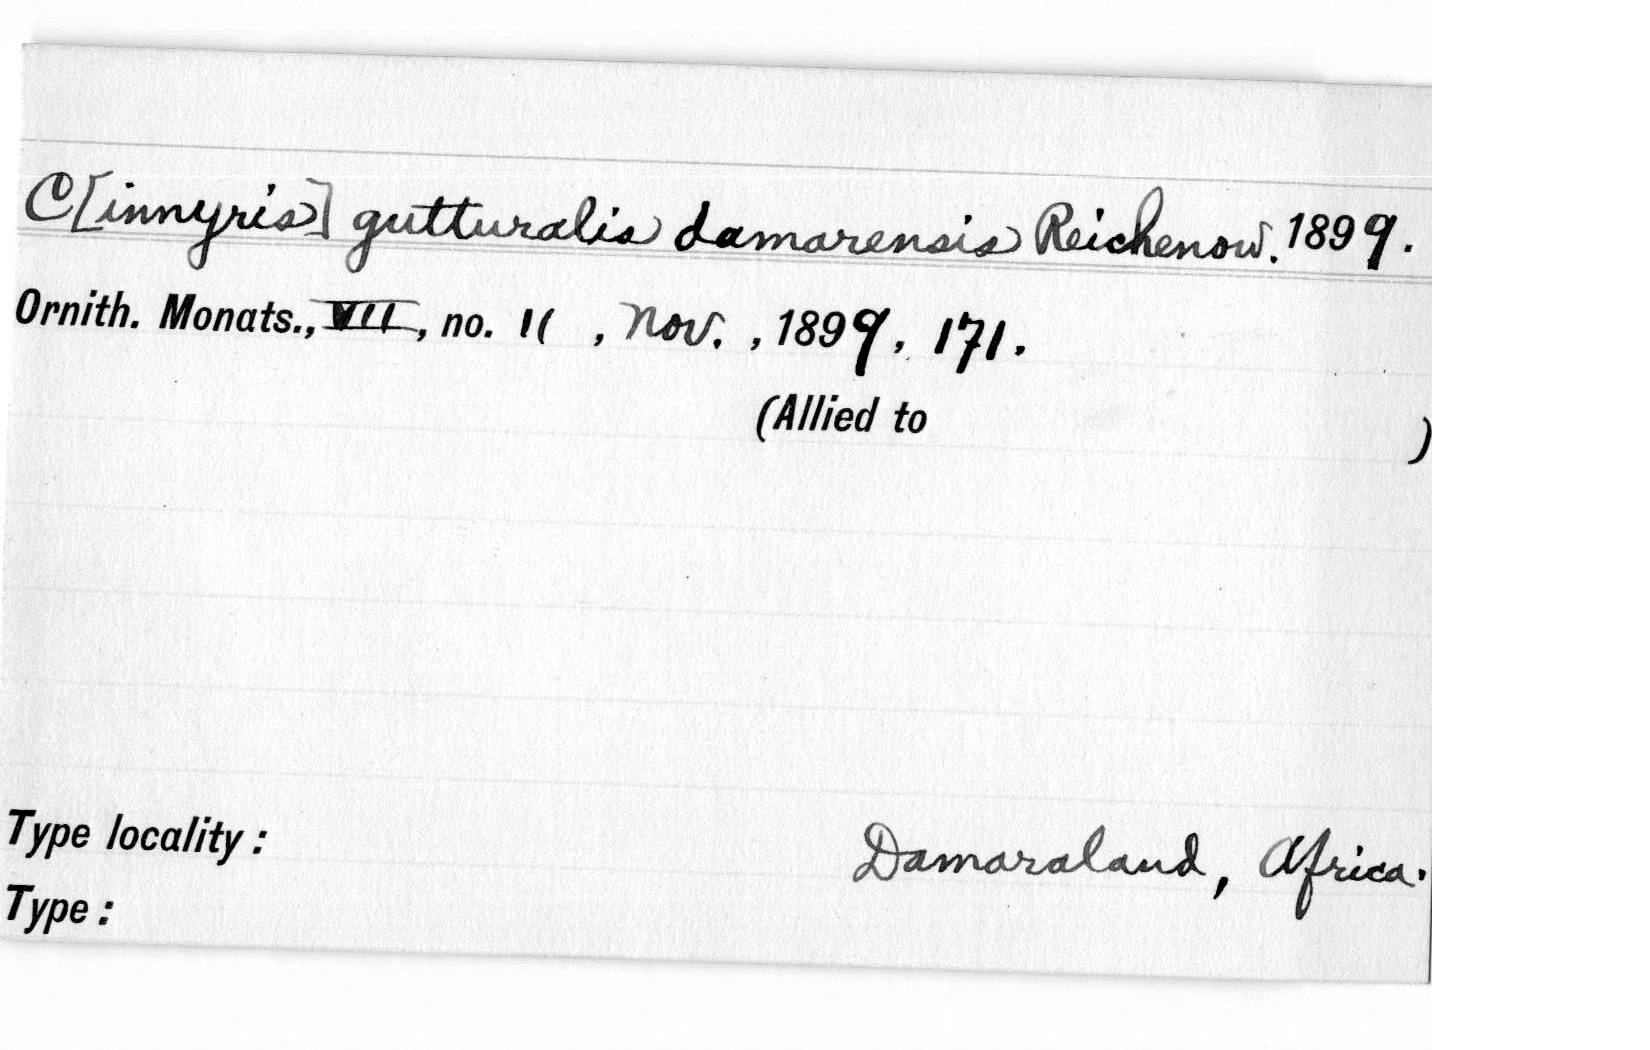 C[innyris] gutturalis damarensis Reichenow. 1899.
Ornith. Monats., VII, no. 11 , Nov. , 1899, 171.
(Allied to )
Type locality: Damaraland, Africa.
Type: